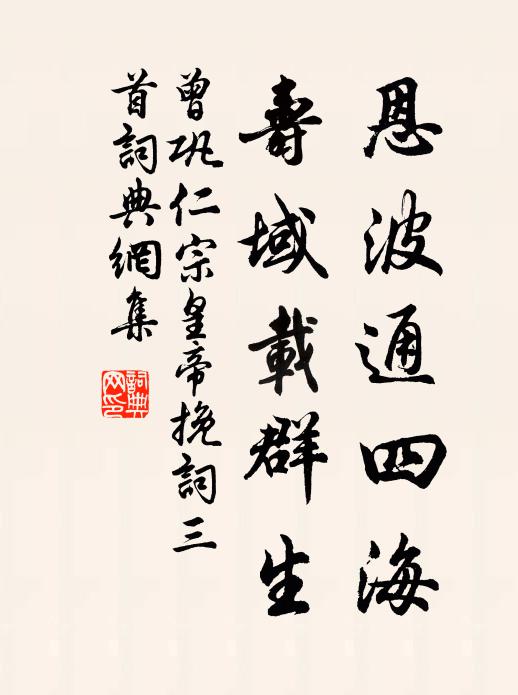 恩波通四海
壽域載群生
曾巩仁宗皇帝挽詞三
首詞典網集
詞典網印